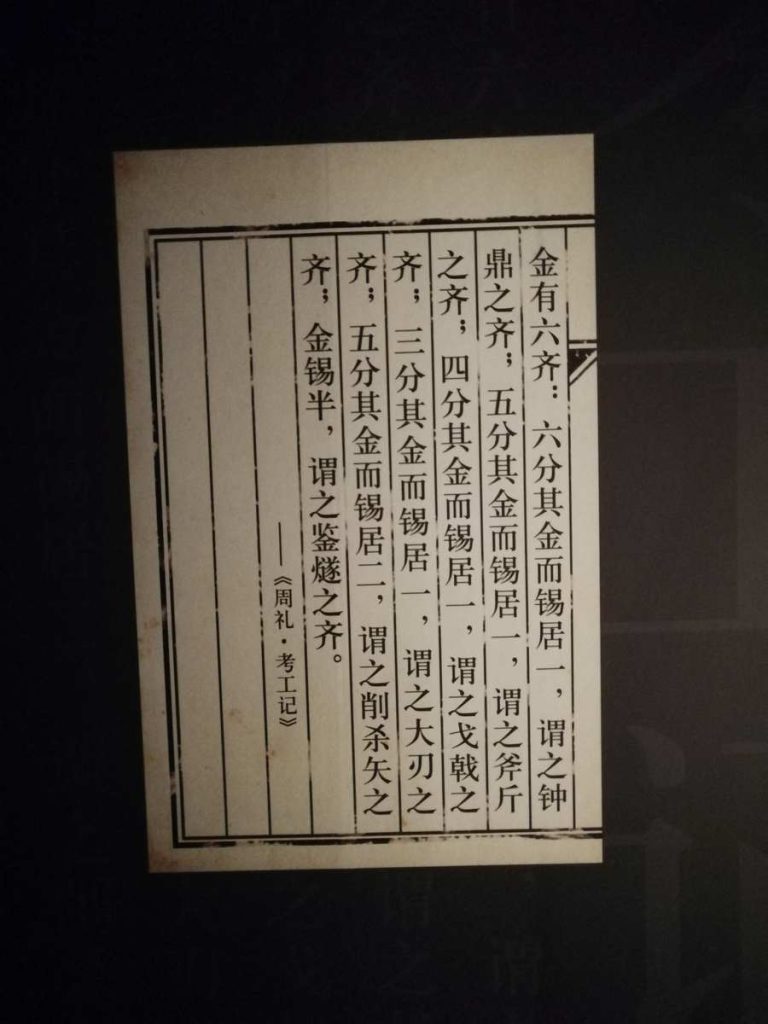 金有六齐：六分其金而锡居一，谓之钟
鼎之齐；五分其金而锡居一，谓之斧斤
之齐；四分其金而锡居一，谓之戈戟之
齐；三分其金而锡居一，谓之大刃之
齐；五分其金而锡居二，谓之削杀矢之
齐；金锡半，谓之鉴燧之齐。
——《周礼·考工记》